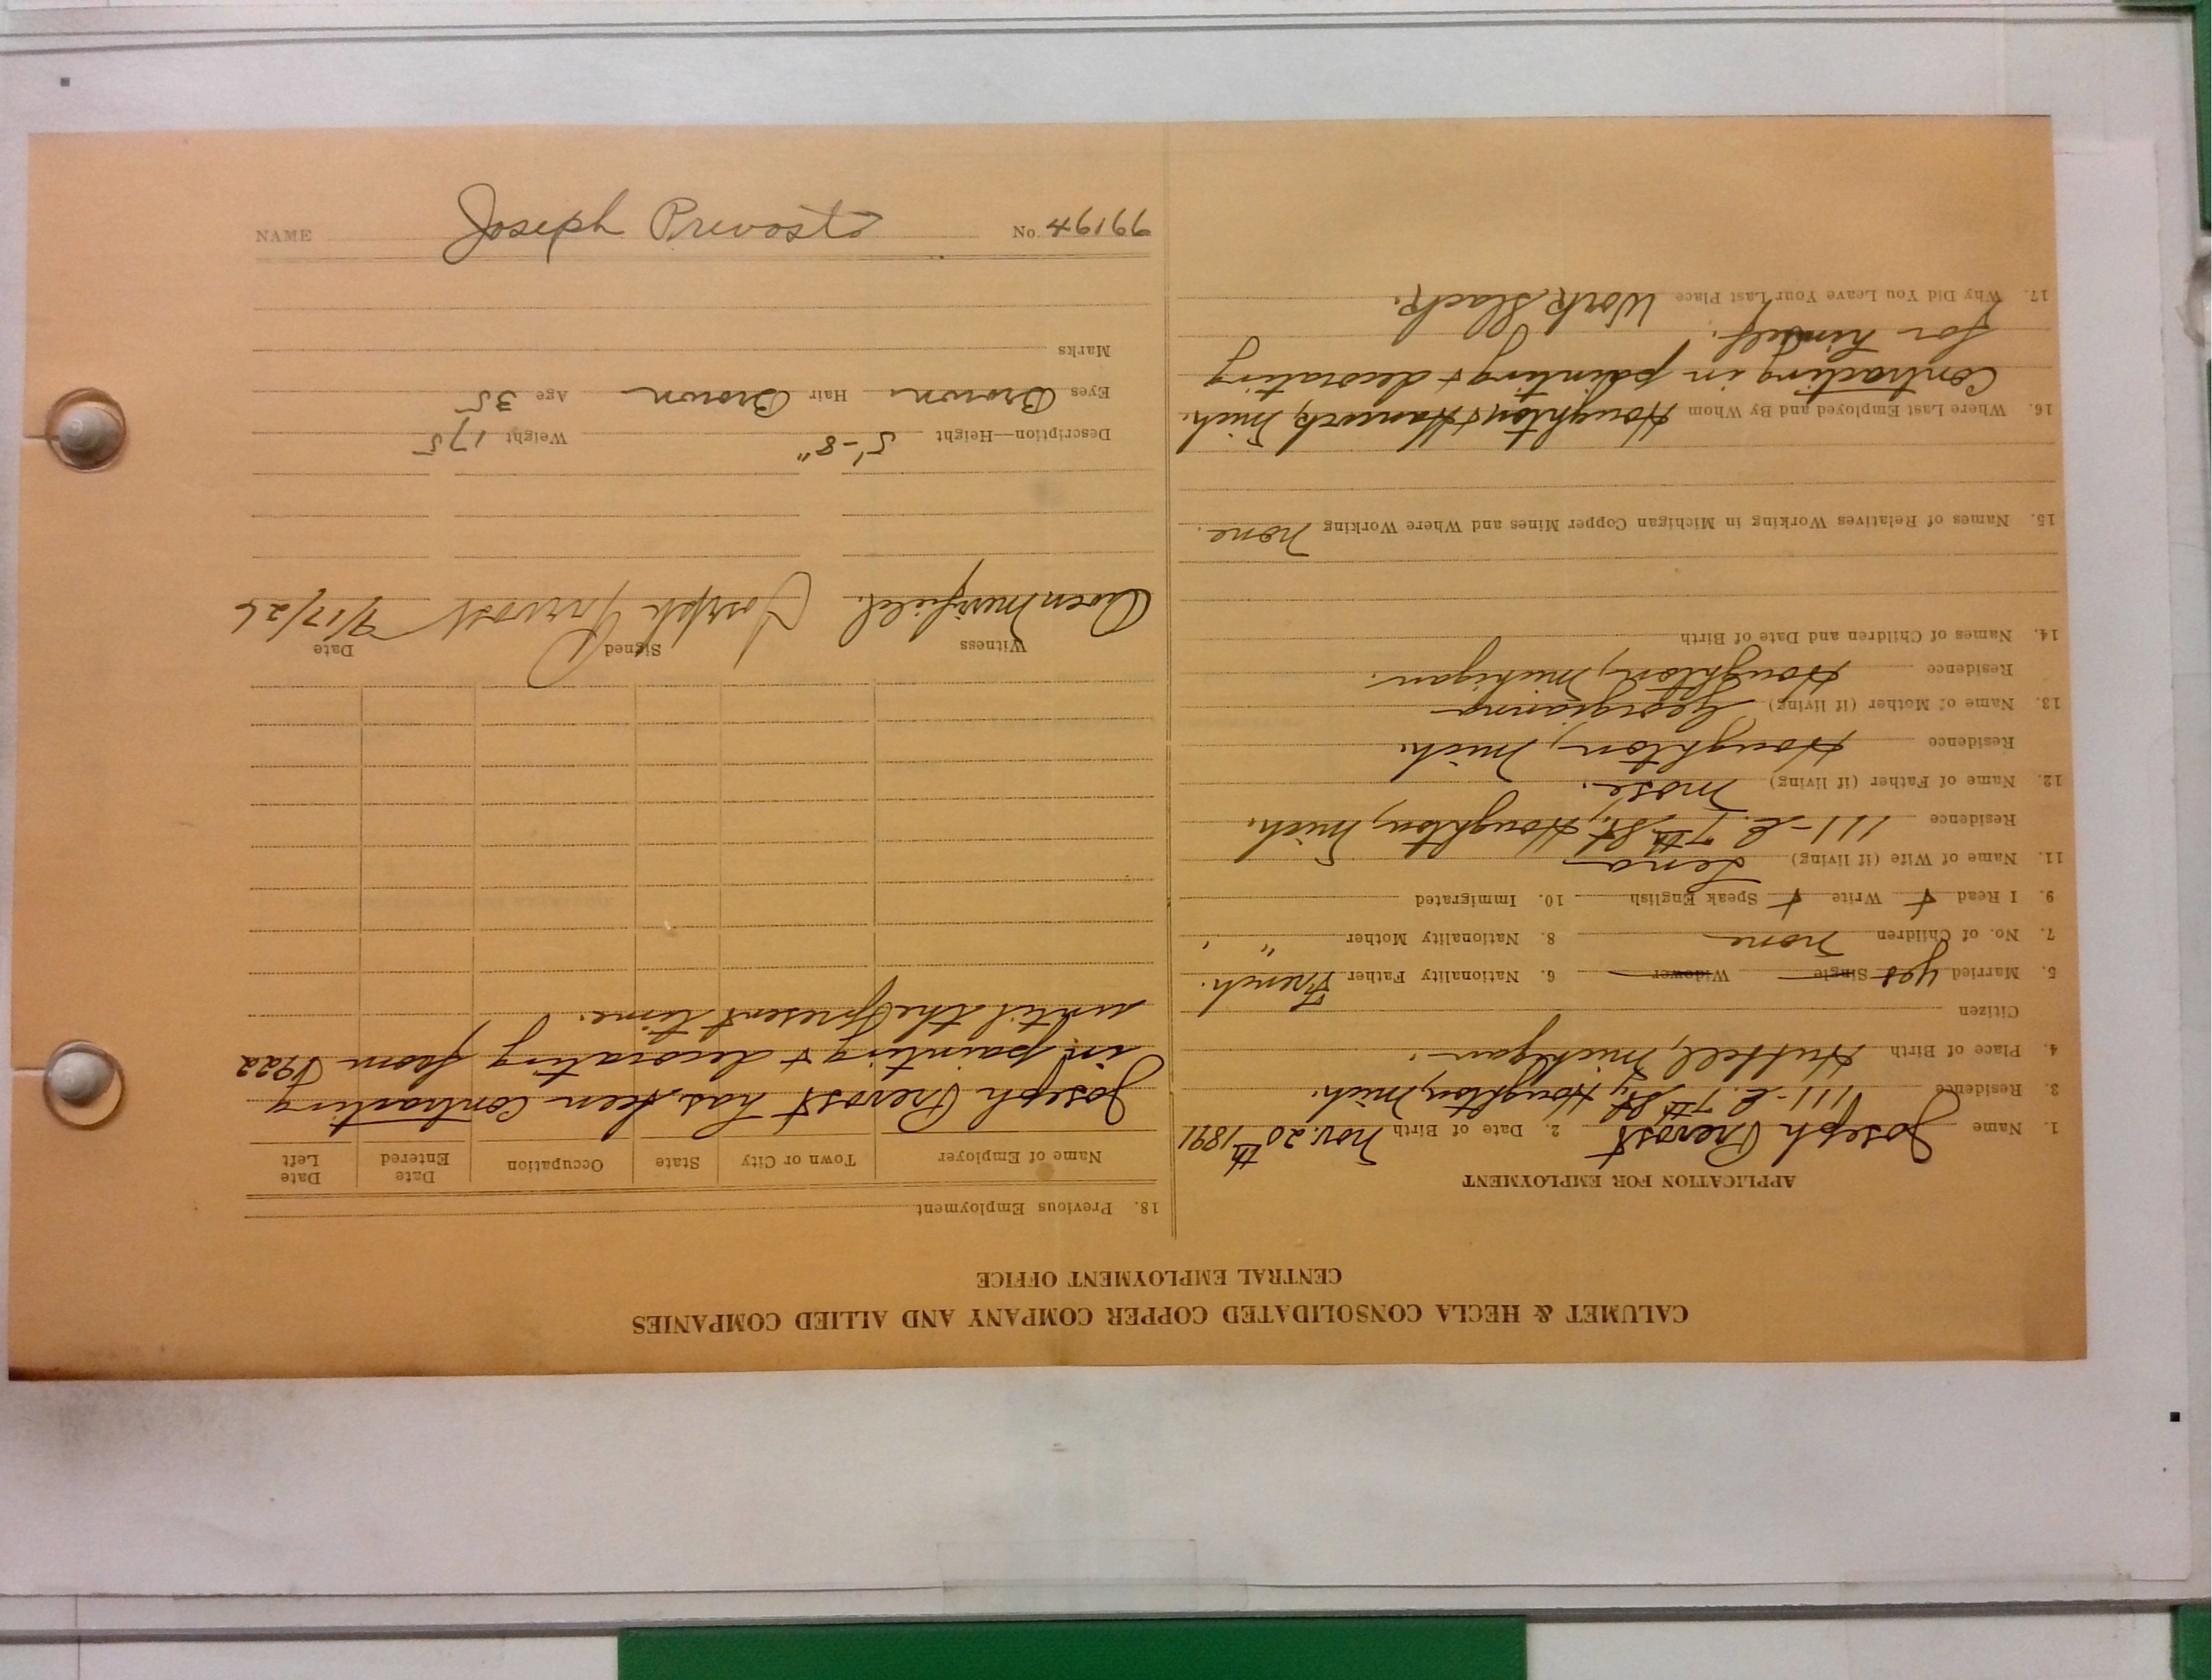 CALUMET & HECLA CONSOLIDATED COPPER COMPANY AND ALLIED COMPANIES
CENTRAL EMPLOYMENT OFFICE
APPLICATION FOR EMPLOYMENT
1. Name Joseph Prevost 2. Date of Birth Nov. 20th 1891
3. Residence 111-E. 7th St., Houghton, Mich.
4. Place of Birth Hubbell, Michigan.
Citizen
5. Married yes Single Widower 6. Nationality Father French.
7. No. of Children none 8. Nationality Mother " .
9. I Read + Write + Speak English 10. Immigrated
11. Name of Wife (if living) Lena
Residence 111-E. 7th St., Houghton, Mich.
12. Name of Father (if living) Mose.
Residence Houghton, Mich.
13. Name of Mother (if living) Georgianna
Residence Houghton, Michigan.
14. Names of Children and Date of Birth
15. Names of Relatives Working in Michigan Copper Mines and Where Working none.
16. Where Last Employed and By Whom Houghton & Hancock, Mich.
Contracting in painting & decorating
for himself.
17. Why Did You Leave Your Last Place Work slack.
18. Previous Employment
Name of Employer Town or City State Occupation Date Entered Date Left
Joseph Prevost has been contracting
in painting & decorating from 1922
until the present time.
Witness Signed Date
Owen Joseph Prevost 9/17/26
Description—Height 5'-8" Weight 175
Eyes Brown Hair Brown Age 35
Marks
NAME Joseph Prevost No. 99194